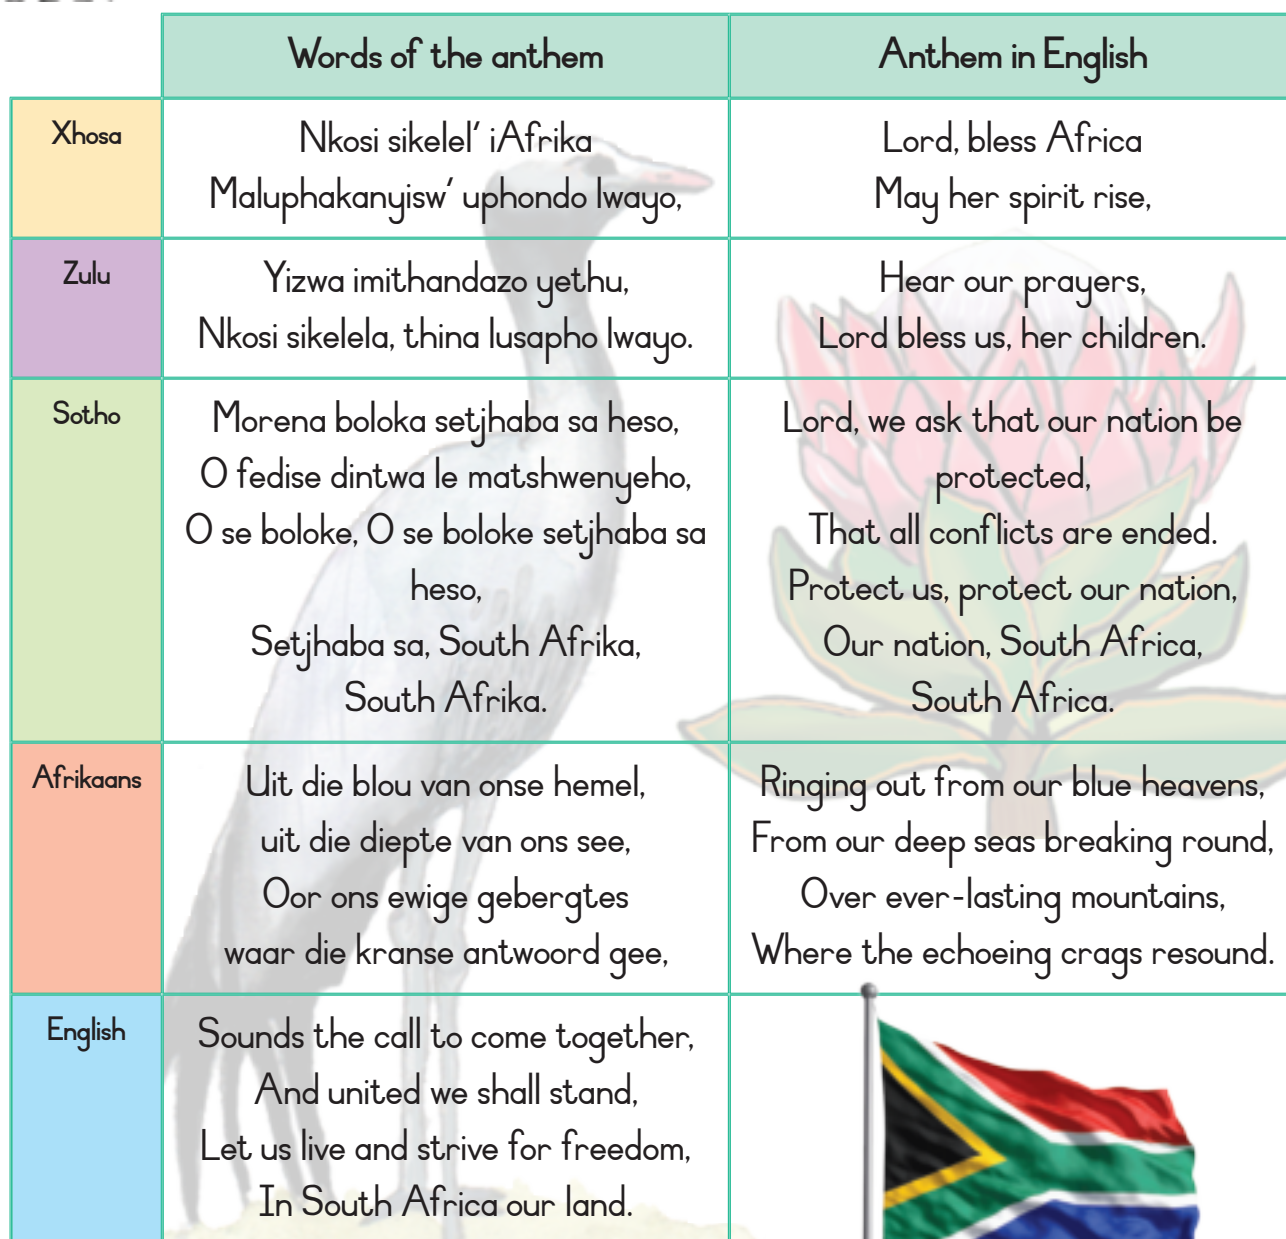 Words of the anthem
Anthem in English
Xhosa
Nkosi sikelel' iAfrika
Maluphakanyisw' uphondo lwayo,
Lord, bless Africa
May her spirit rise,
Zulu
Yizwa imithandazo yethu,
Nkosi sikelela, thina lusapho lwayo.
Hear our prayers,
Lord bless us, her children.
Sotho
Morena boloka setjhaba sa heso,
O fedise dintwa le matshwenyeho,
O se boloke, O se boloke setjhaba sa
heso,
Setjhaba sa, South Afrika,
South Afrika.
Lord, we ask that our nation be
protected,
That all conflicts are ended.
Protect us, protect our nation,
Our nation, South Africa,
South Africa.
Afrikaans
Uit die blou van onse hemel,
uit die diepte van ons see,
Oor ons ewige gebergtes
waar die kranse antwoord gee,
Ringing out from our blue heavens,
From our deep seas breaking round,
Over ever-lasting mountains,
Where the echoeing crags resound.
English
Sounds the call to come together,
And united we shall stand,
Let us live and strive for freedom,
In South Africa our land.